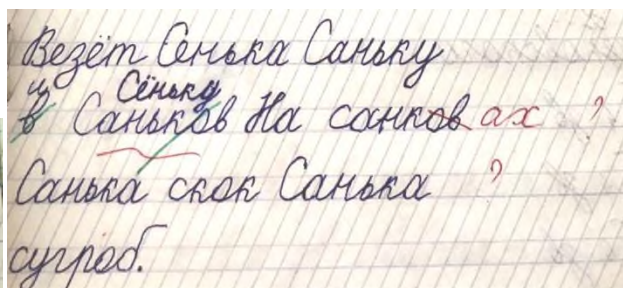 Везёт Сенька Саньку
и Сёньку
в Саньков На санков ах ?
Санька скок Санька ?
сугроб.